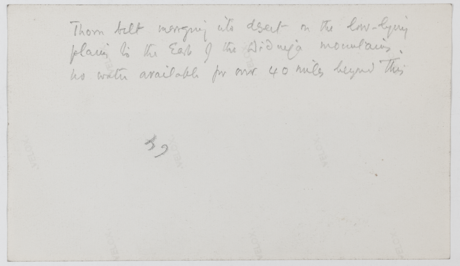 Thorn belt merging into desert on the low-lying
plains to the East of the Didinga mountains.
no water available for over 40 miles beyond this